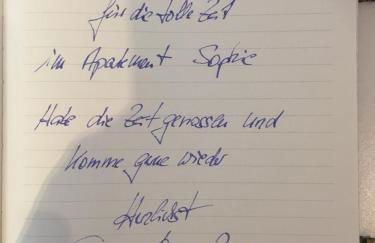 für die tolle Zeit
im Apartment Sophie
Habe die Zeit genossen und
komme gerne wieder
Herzlichst